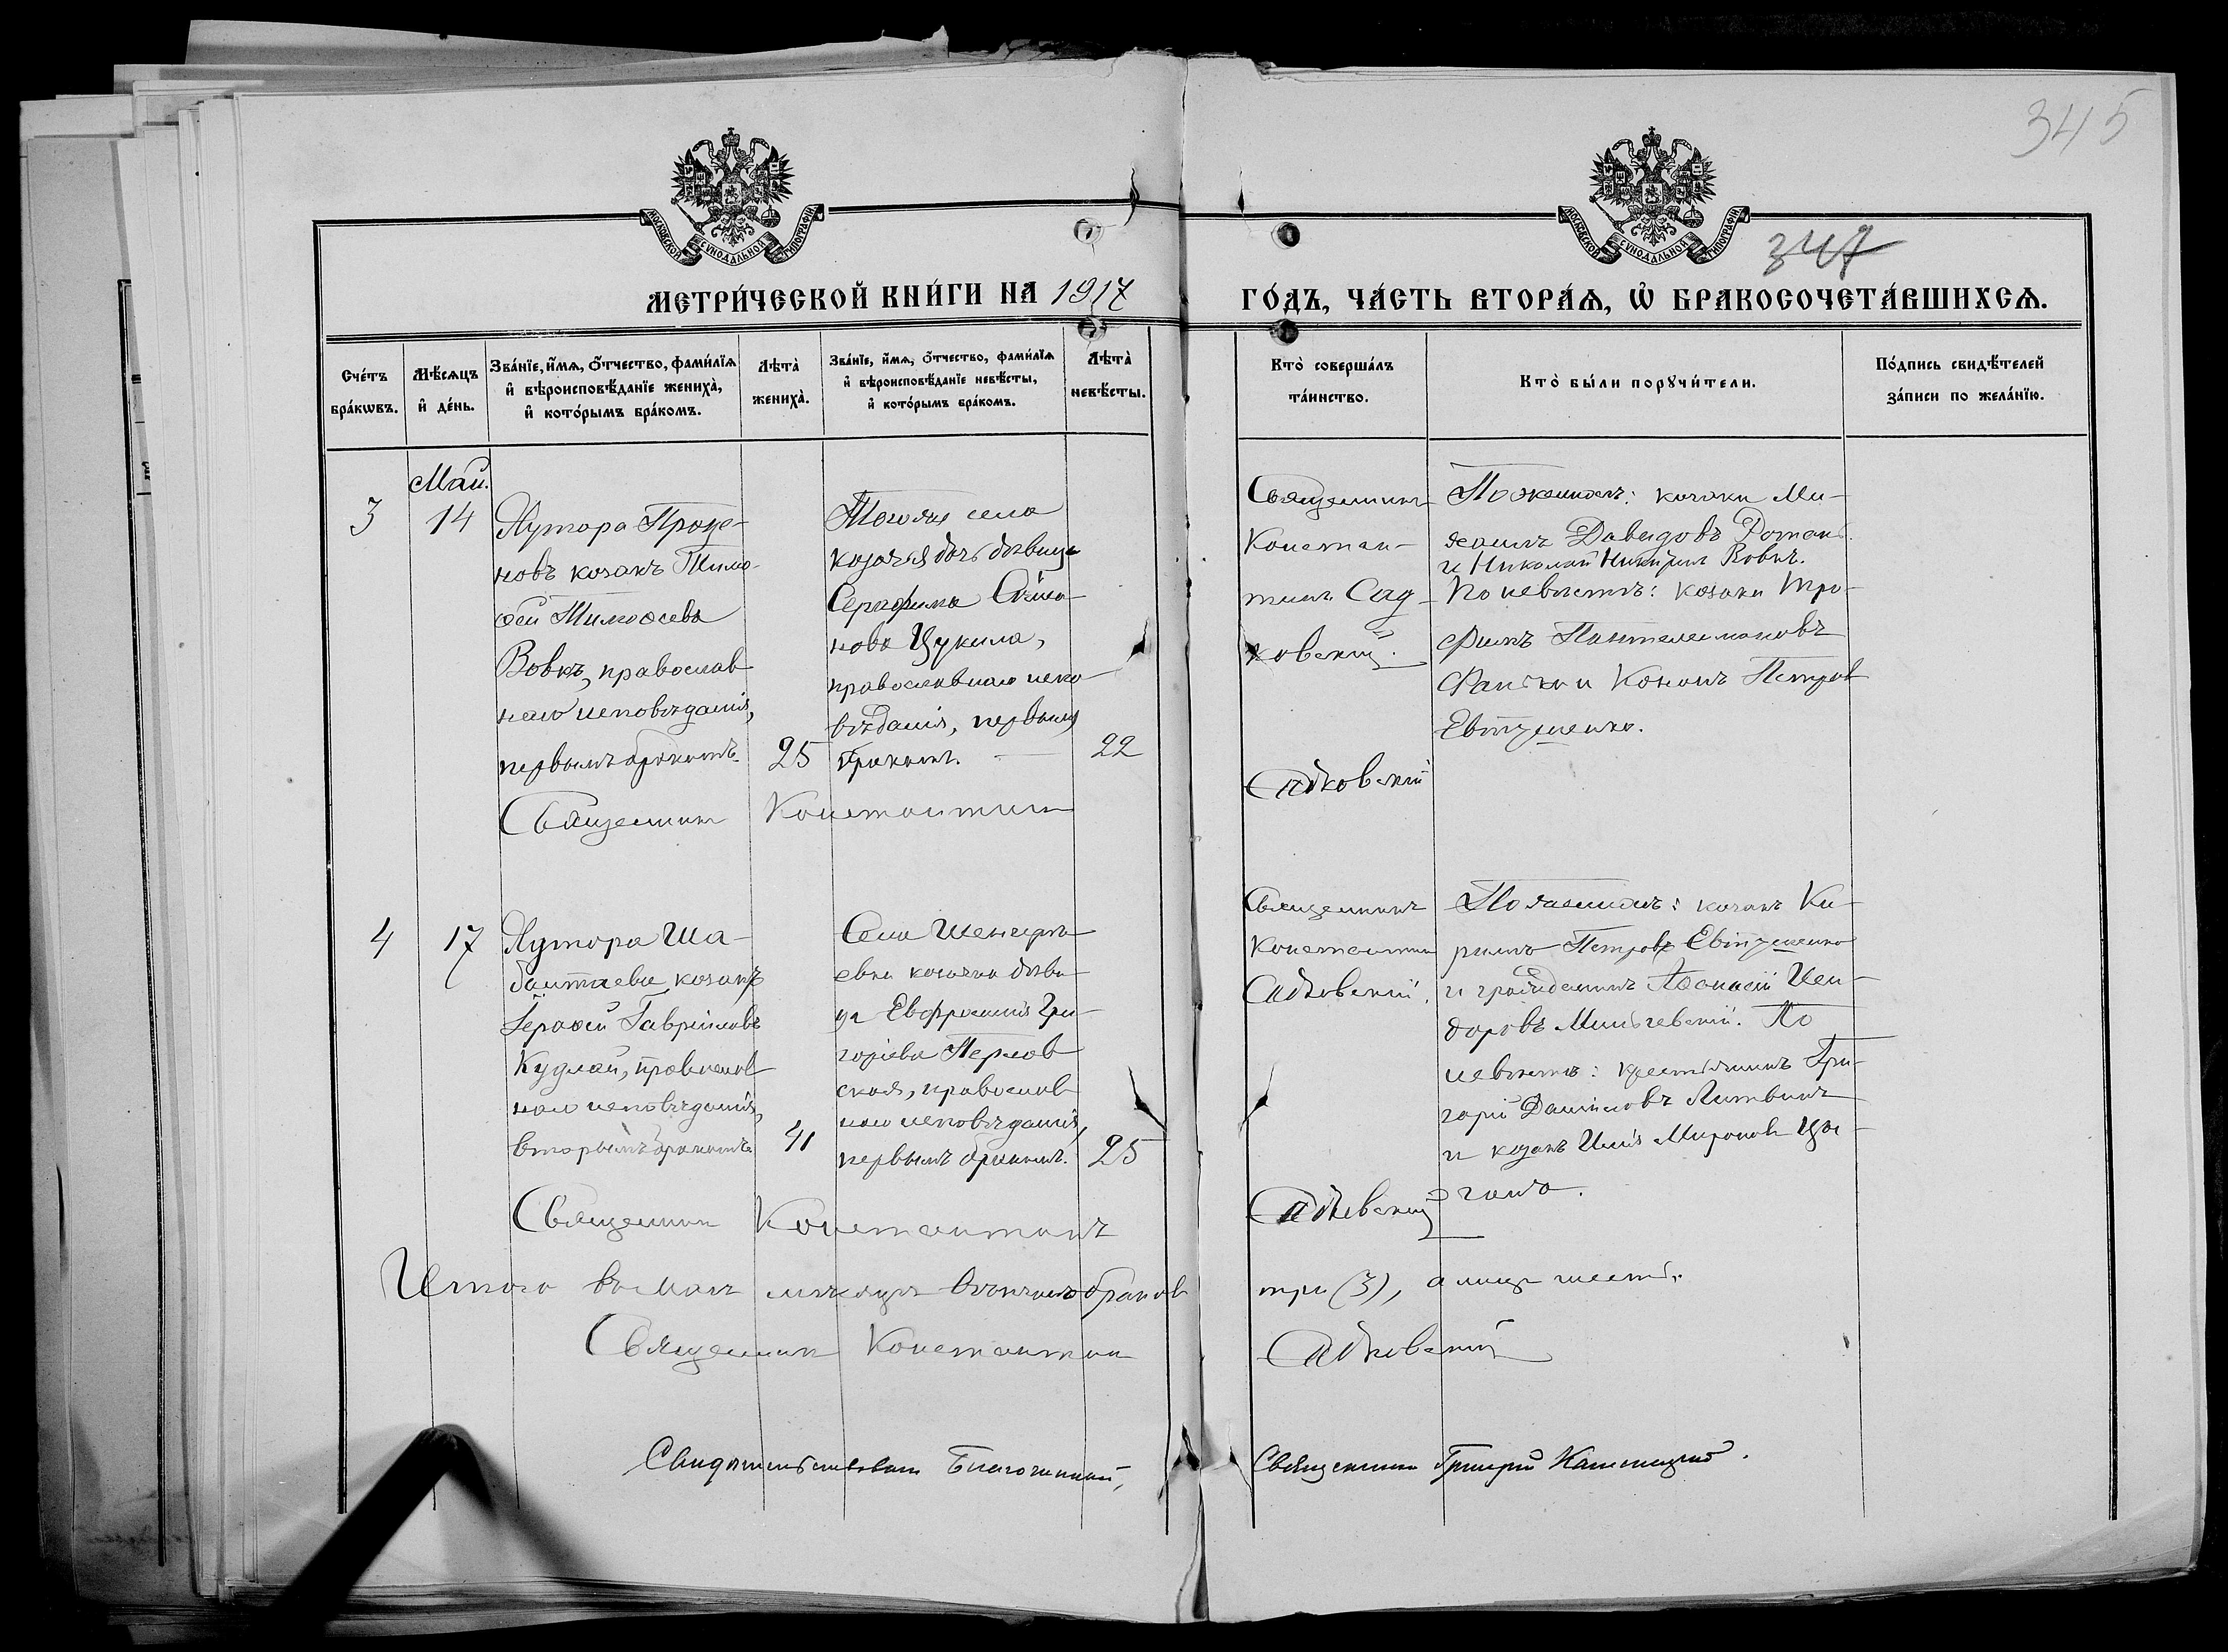 345
МОСКОВСКОЙ СѴНОДАЛЬНОЙ ТИПОГРАФІИ
МОСКОВСКОЙ СѴНОДАЛЬНОЙ ТИПОГРАФІИ
347
МЕТРИ́ЧЕСКОЙ КНИ́ГИ НА 1917
ГО́ДЪ, ЧА́СТЬ ВТОРА́Ѧ, Ѽ БРАКОСОЧЕТА́ВШИХСѦ.
Сче́тъ
бра́кѡвъ.
Мѣ́сяцъ
и҆ де́нь.
Зва́нїе, и҆́мѧ, ѻ҆́тчество, фами́лїѧ
и҆ вѣроисповѣ́данїе жениха̀,
и҆ кото́рымъ бра́комъ.
Лѣта̀
жениха̀.
Зва́нїе, и҆́мѧ, ѻ҆́тчество, фами́лїѧ
и҆ вѣроисповѣ́данїе невѣ́сты,
и҆ кото́рымъ бра́комъ.
Лѣта̀
невѣ́сты.
Кто̀ соверша́лъ
та́инство.
Кто̀ бы́ли порꙋчи́тели.
По́дпись свидѣ́телей
за́писи по жела́нїю.
3
Май.
14
Хутора Проце-
новъ козакъ Тимо-
ѳей Тимоѳеевъ
Вовкъ, православ
наго исповѣданія,
первымъ бракомъ.
25
Тогоже села
козачья дочь дѣвица
Серафима Симо-
нова Цукила,
православнаго испо-
вѣданія, первымъ
бракомъ.
22
Священникъ
Констан-
тинъ Сад-
ковскій.
По женихѣ: козаки Ми-
хаилъ Давидовъ
и Николай Вовкъ.
По невѣстѣ: козаки Тро-
фимъ Пантелеимоновъ
и Кононъ Петровъ
Евтушенко.
Священникъ Константинъ Садковскій
4
17
Хутора Ша-
баитаева козакъ
Іероѳей Гавріиловъ
Кудлай, православ
наго исповѣданія,
вторымъ бракомъ
41
Села
евки козачка дѣви-
ца Евфросинія Гри-
горіева Перлов
ская, православ
наго исповѣданія,
первымъ бракомъ.
25
Священникъ
Константинъ
Садковскій.
По женихѣ: козакъ Ки-
рилъ Петровъ Евтушенко
и гражданинъ Аѳанасій Иси-
доровъ Мильчевскій. По
невѣстѣ: крестьянинъ Гри-
горій Даниловъ Литвинъ
и козакъ Илія Мироновъ Цы-
гана.
Священникъ Константинъ Садковскій
Итого въ маѣ мѣсяцѣ вѣнчано браковъ три (3), а лицъ шесть.
Священникъ Константинъ Садковскій
Свидѣтельствовалъ Благочинный, Священникъ Григорій